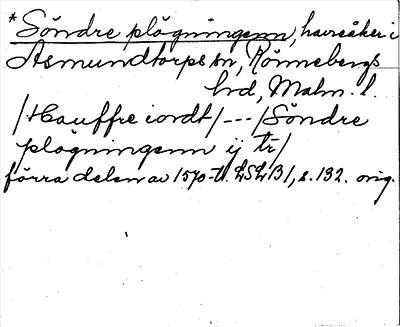 *Söndre plögningenn, havreåker i
Asmundtorps sn, Rönnebergs
hd, Malm. l.
/Hauffre iordt/---/Söndre
plögningenn ij tr/
förra delen av 1570-t. LSLB1, s. 132. orig.